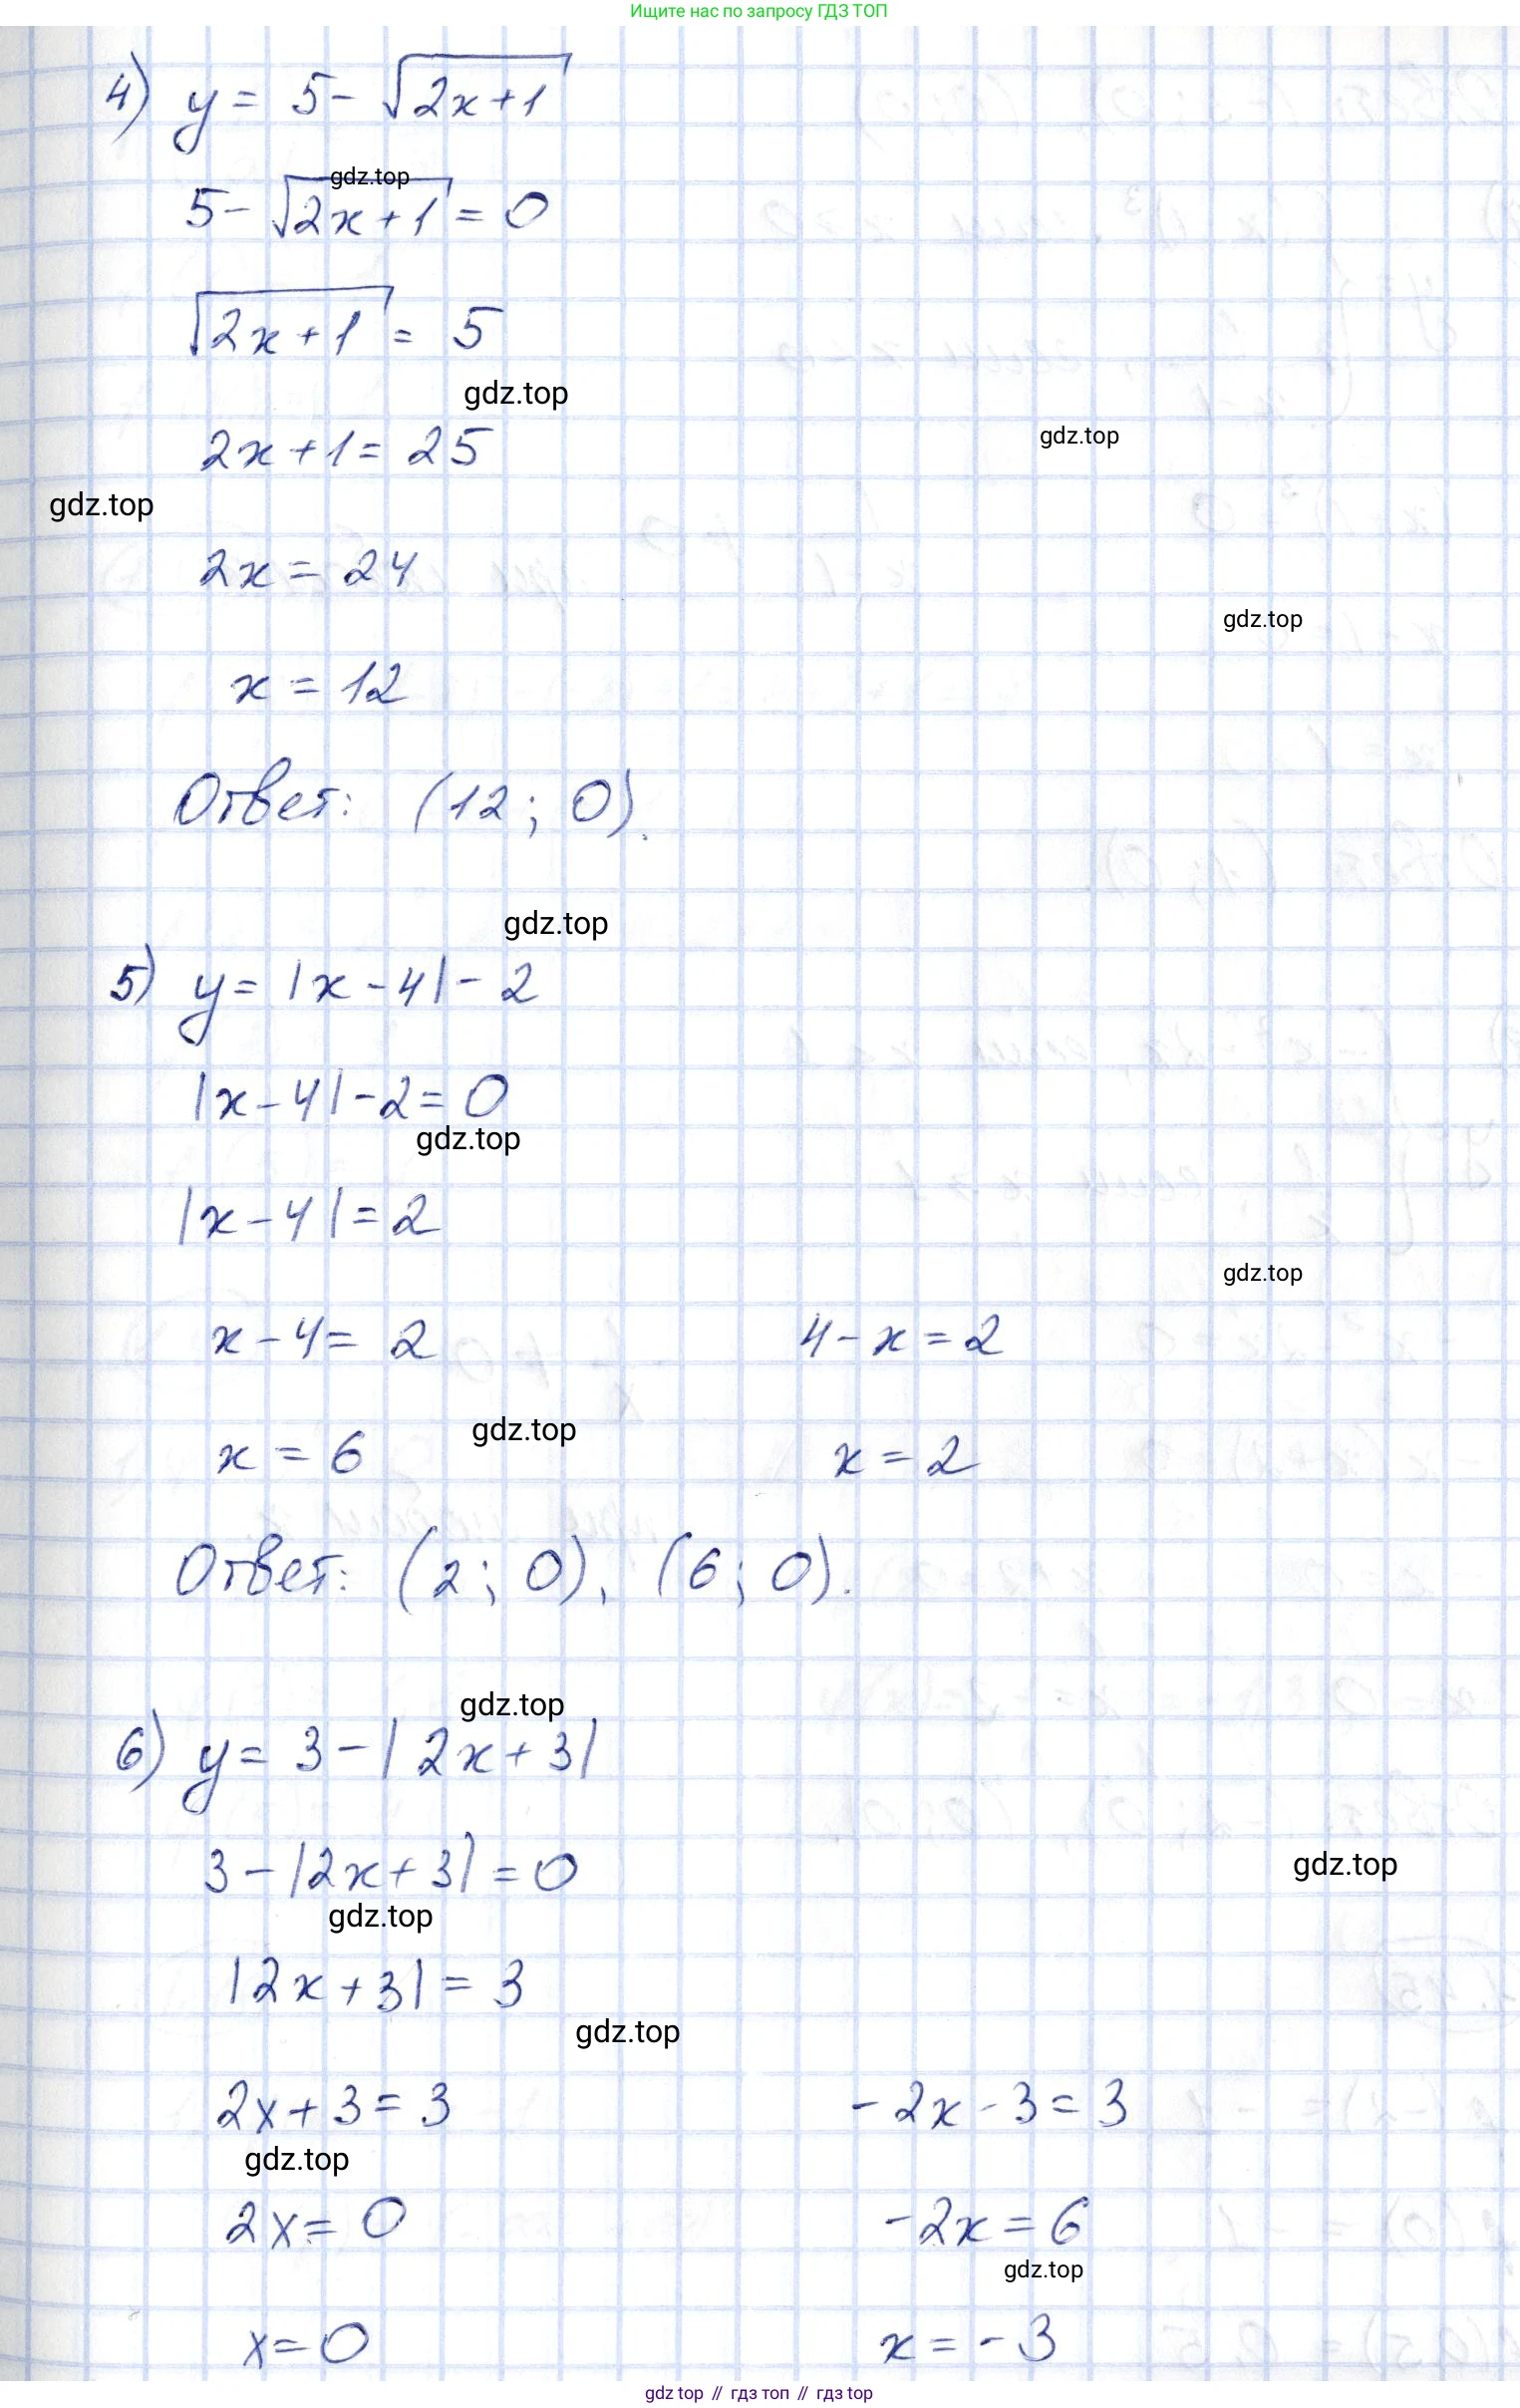 Ищите нас по запросу ГДЗ ТОП
4) y = 5 - √(2x+1)
gdz.top
5 - √(2x+1) = 0
√(2x+1) = 5
gdz.top
gdz.top
2x + 1 = 25
gdz.top
2x = 24
gdz.top
x = 12
Ответ: (12; 0).
gdz.top
5) y = |x - 4| - 2
|x - 4| - 2 = 0
gdz.top
|x - 4| = 2
gdz.top
x - 4 = 2    4 - x = 2
gdz.top
x = 6    x = 2
Ответ: (2; 0), (6; 0).
gdz.top
6) y = 3 - |2x + 3|
3 - |2x + 3| = 0
gdz.top
gdz.top
|2x + 3| = 3
gdz.top
2x + 3 = 3    -2x - 3 = 3
gdz.top
2x = 0    -2x = 6
gdz.top
x = 0    x = -3
gdz top // гдз топ // гдз top